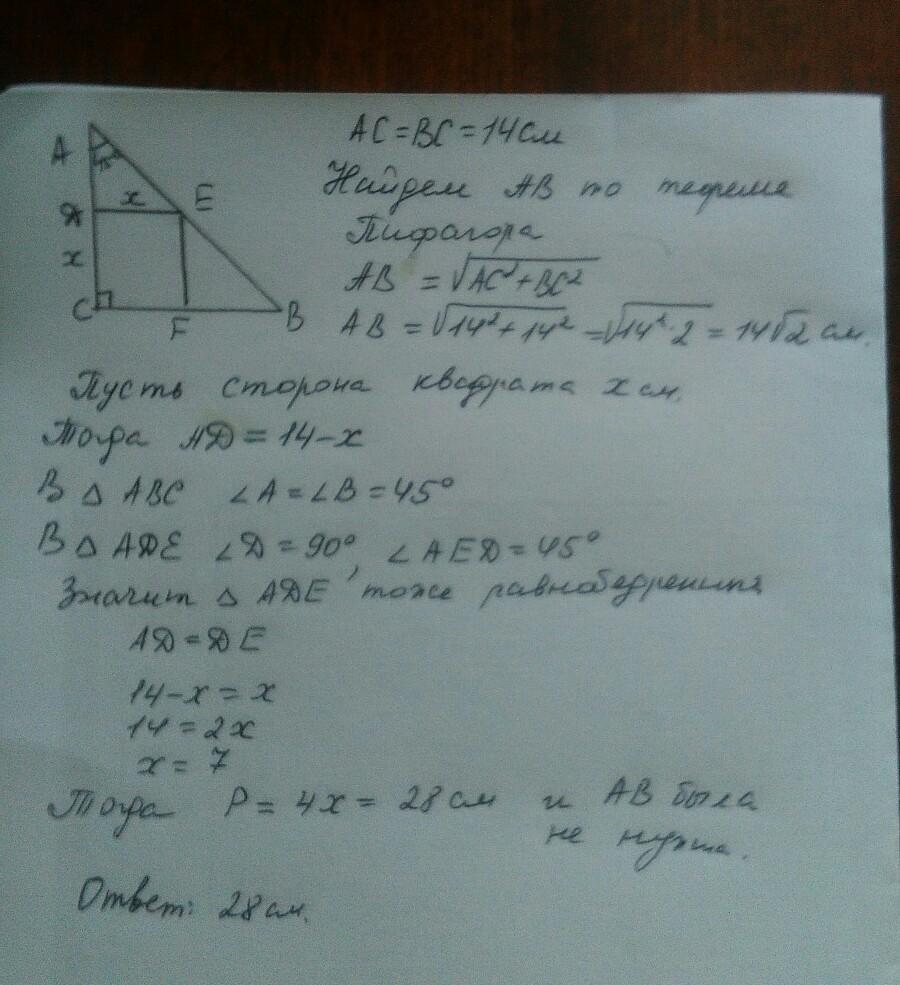 A
45
x
E
D
x
C
F
B
AC = BC = 14 см
Найдем AB по теореме
Пифагора
AB = √AC² + BC²
AB = √14² + 14² = √14² · 2 = 14√2 см.
Пусть сторона квадрата x см.
Тогда AD = 14 - x
В △ ABC ∠A = ∠B = 45°
В △ ADE ∠D = 90°, ∠AED = 45°
Значит △ ADE тоже равнобедренный
AD = DE
14 - x = x
14 = 2x
x = 7
Тогда P = 4x = 28 см и AB была
не нужна.
Ответ: 28 см.